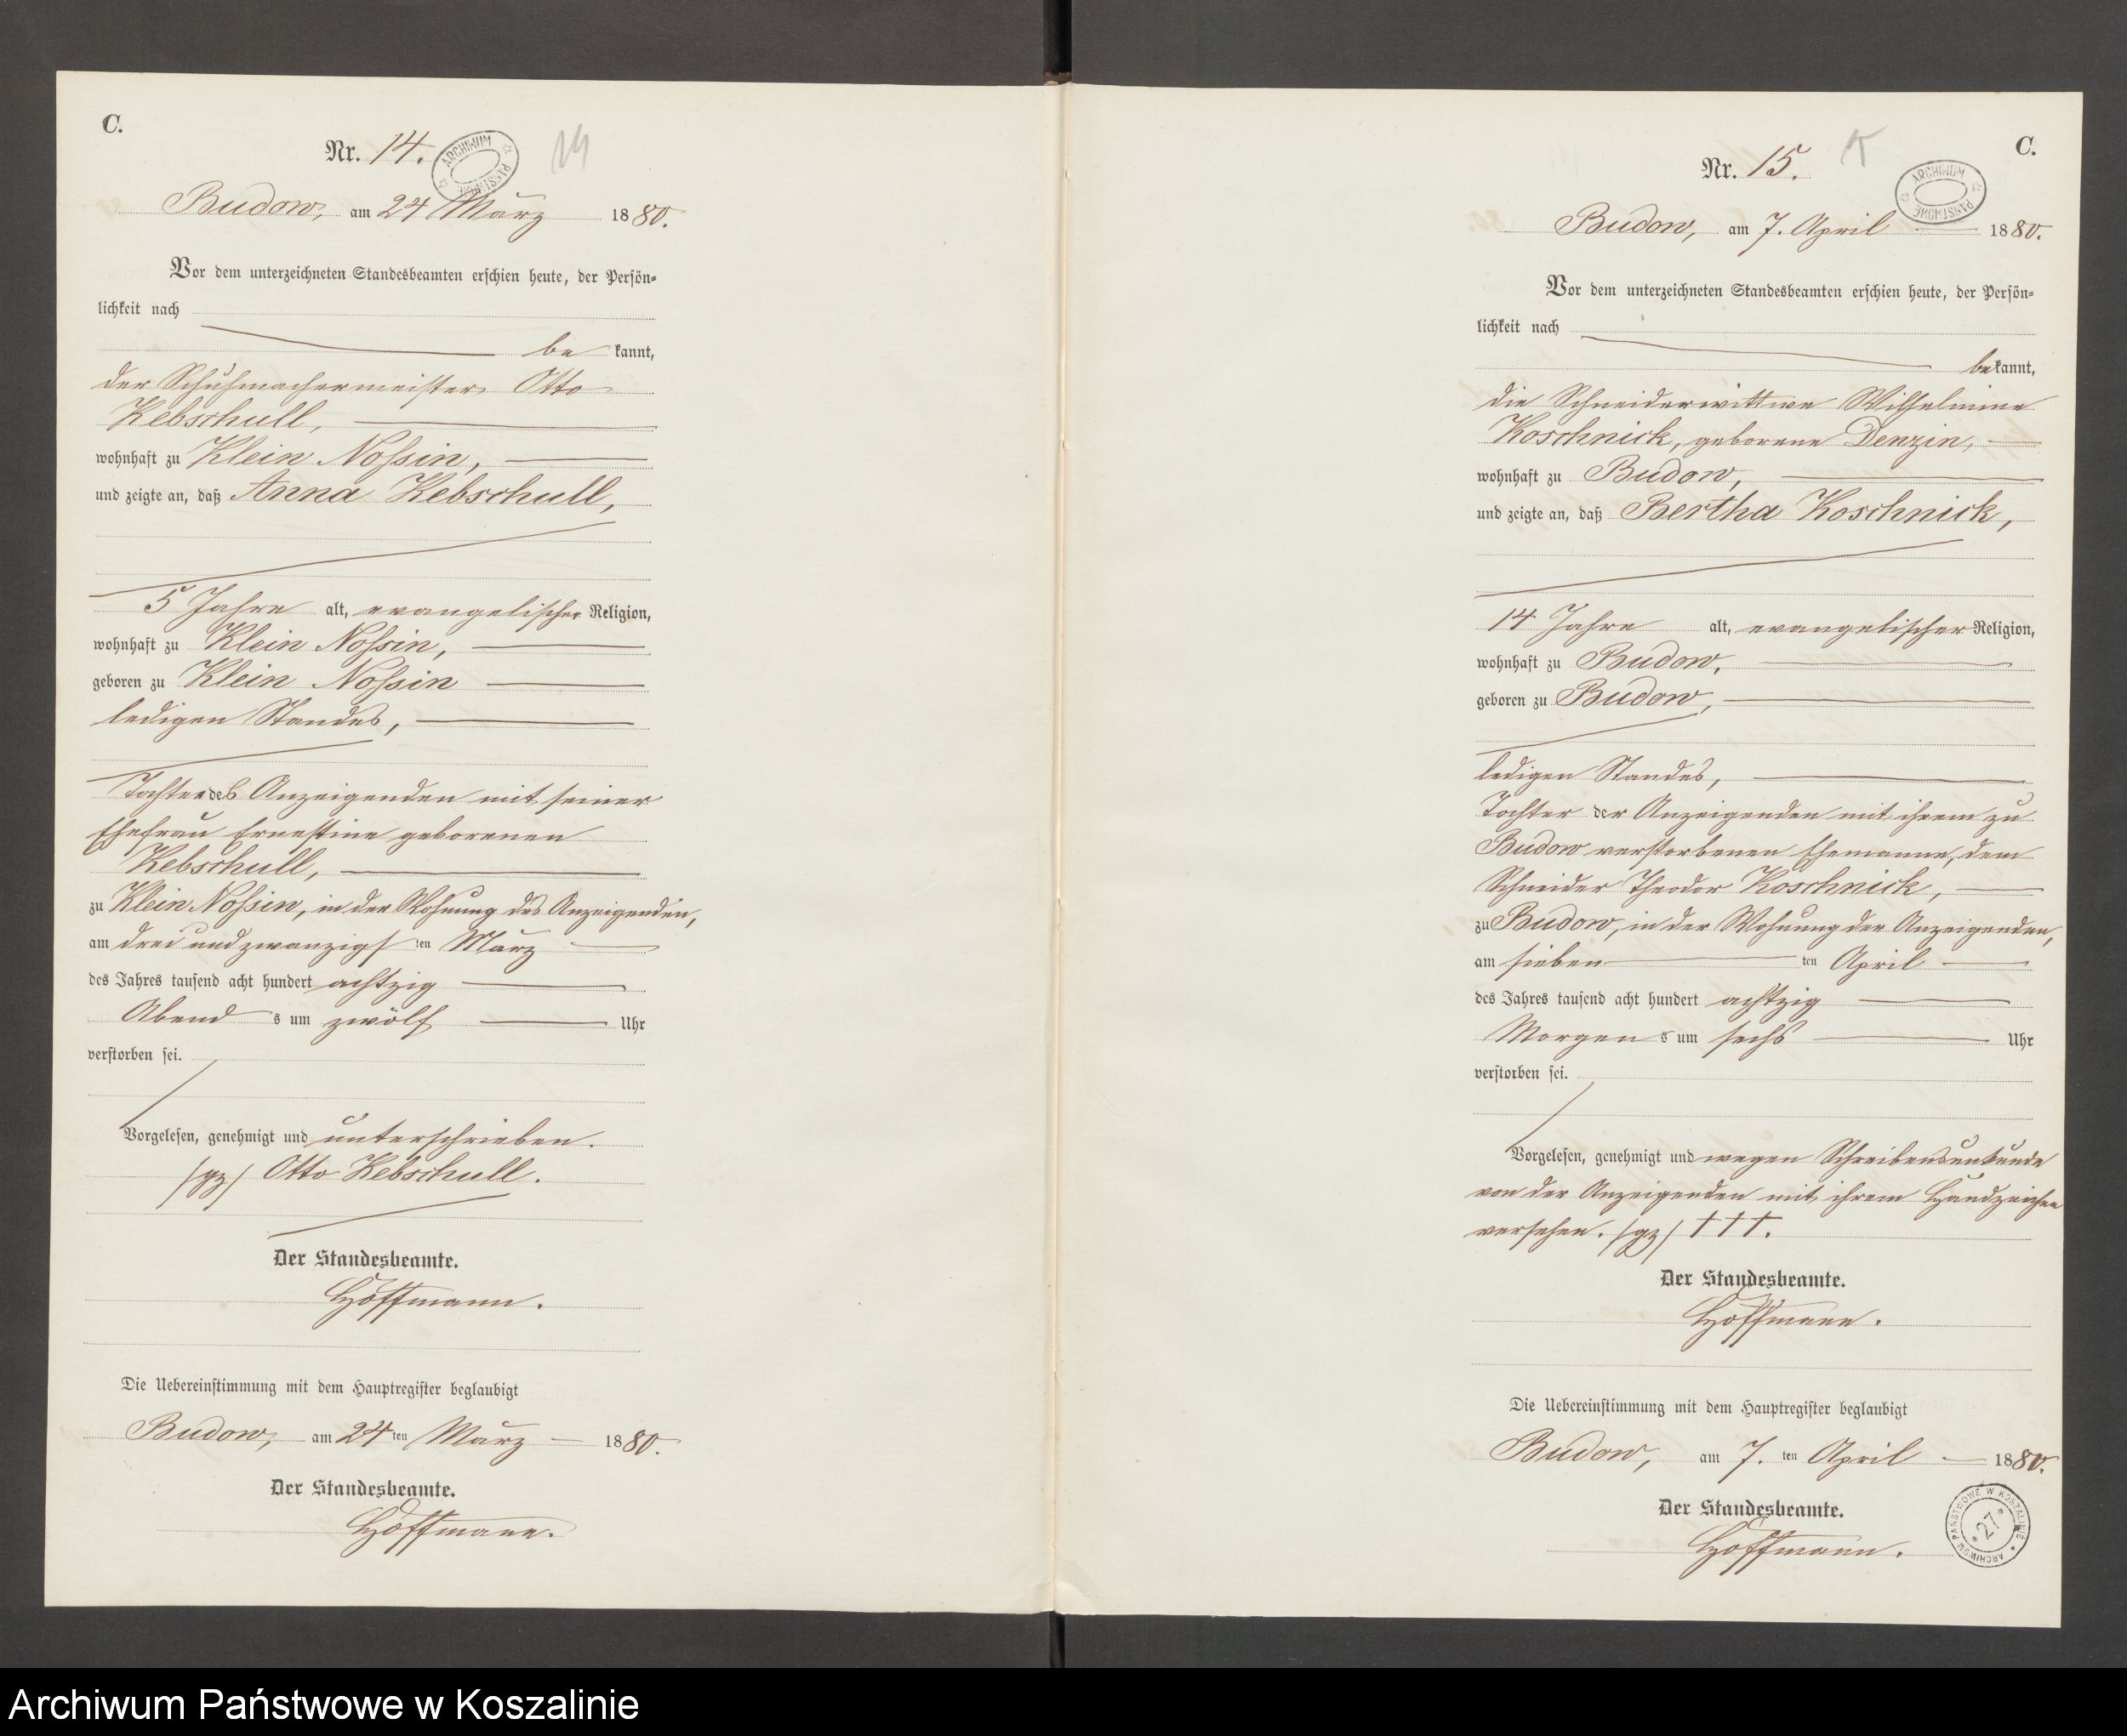 C.
Nr. 14.
ARCHIWUM PAŃSTWOWE
14
Budow, am 24 März 1880.
Vor dem unterzeichneten Standesbeamten erschien heute, der Persön-
lichkeit nach
be kannt,
der Schuhmachermeister Otto
Kebschull,
wohnhaft zu Klein Nossin,
und zeigte an, daß Anna Kebschull,
5 Jahre alt, evangelischer Religion,
wohnhaft zu Klein Nossin,
geboren zu Klein Nossin
ledigen Standes,
Tochter des Anzeigenden mit seiner
Ehefrau Ernestine geborenen
Kebschull,
zu Klein Nossin, in der Wohnung des Anzeigenden,
am drei und zwanzigs ten März
des Jahres tausend acht hundert achtzig
Abend s um zwölf Uhr
verstorben sei.
Vorgelesen, genehmigt und unterschrieben.
/gz/ Otto Kebschull.
Der Standesbeamte.
Hoffmann.
Die Uebereinstimmung mit dem Hauptregister beglaubigt
Budow, am 24 ten März 1880.
Der Standesbeamte.
Hoffmann.
C.
Nr. 15.
15
ARCHIWUM PAŃSTWOWE
Budow, am 7. April 1880.
Vor dem unterzeichneten Standesbeamten erschien heute, der Persön-
lichkeit nach
bekannt,
die Schneiderwittwe Wilhelmine
Koschnick, geborene Denzin,
wohnhaft zu Budow,
und zeigte an, daß Bertha Koschnick,
14 Jahre alt, evangelischer Religion,
wohnhaft zu Budow,
geboren zu Budow,
ledigen Standes,
Tochter der Anzeigenden mit ihrem zu
Budow verstorbenen Ehemanne, dem
Schneider Theodor Koschnick,
zu Budow, in der Wohnung der Anzeigenden,
am sieben ten April
des Jahres tausend acht hundert achtzig
Morgen s um sechs Uhr
verstorben sei.
Vorgelesen, genehmigt und wegen Schreibensunkunde
von der Anzeigenden mit ihrem Handzeichen
versehen. /gz/ † † †.
Der Standesbeamte.
Hoffmann.
Die Uebereinstimmung mit dem Hauptregister beglaubigt
Budow, am 7. ten April 1880.
Der Standesbeamte.
Hoffmann.
ARCHIWUM PAŃSTWOWE W KOSZALINIE
* 27 *
Archiwum Państwowe w Koszalinie